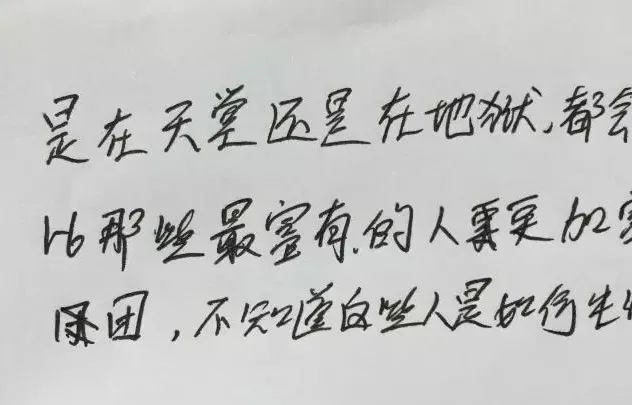 是在天堂还是在地狱,都会
比那些最富有的人要更加
团,不知道这些人是如何生